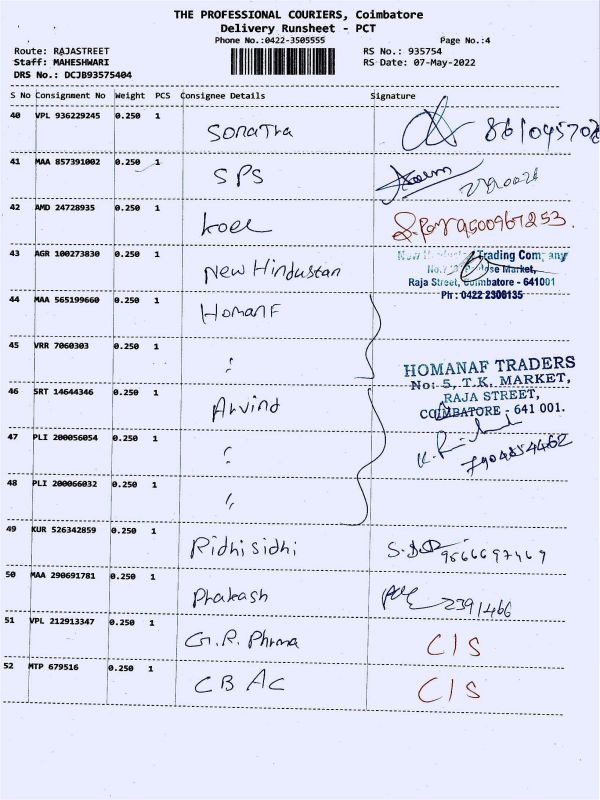 THE PROFESSIONAL COURIERS, Coimbatore
Delivery Runsheet - PCT
Phone No.:0422-3505555 Page No.:4
Route: RAJASTREET RS No.: 935754
Staff: MAHESHWARI RS Date: 07-May-2022
DRS No.: DCJB93575404
S No Consignment No Weight PCS Consignee Details Signature
40 VPL 936229245 0.250 1
Sonatra
41 MAA 857391002 0.250 1
SPS
42 AMD 24728935 0.250 1
koel 9500967253.
43 AGR 100273830 0.250 1
New Hindustan
Trading Company
Market,
Raja Street, Coimbatore - 641001
Ph : 0422 2300135
44 MAA 565199660 0.250 1
HomanF
45 VRR 7060303 0.250 1
HOMANAF TRADERS
No: 5, T.K. MARKET,
RAJA STREET,
COIMBATORE - 641 001.
46 SRT 14644346 0.250 1
Arvind
47 PLI 200056054 0.250 1
7904854462
48 PLI 200066032 0.250 1
49 KUR 526342859 0.250 1
Ridhi sidhi
50 MAA 290691781 0.250 1
Prakash 2391466
51 VPL 212913347 0.250 1
G.R. Phrma C/S
52 MTP 679516 0.250 1
CBAC C/S